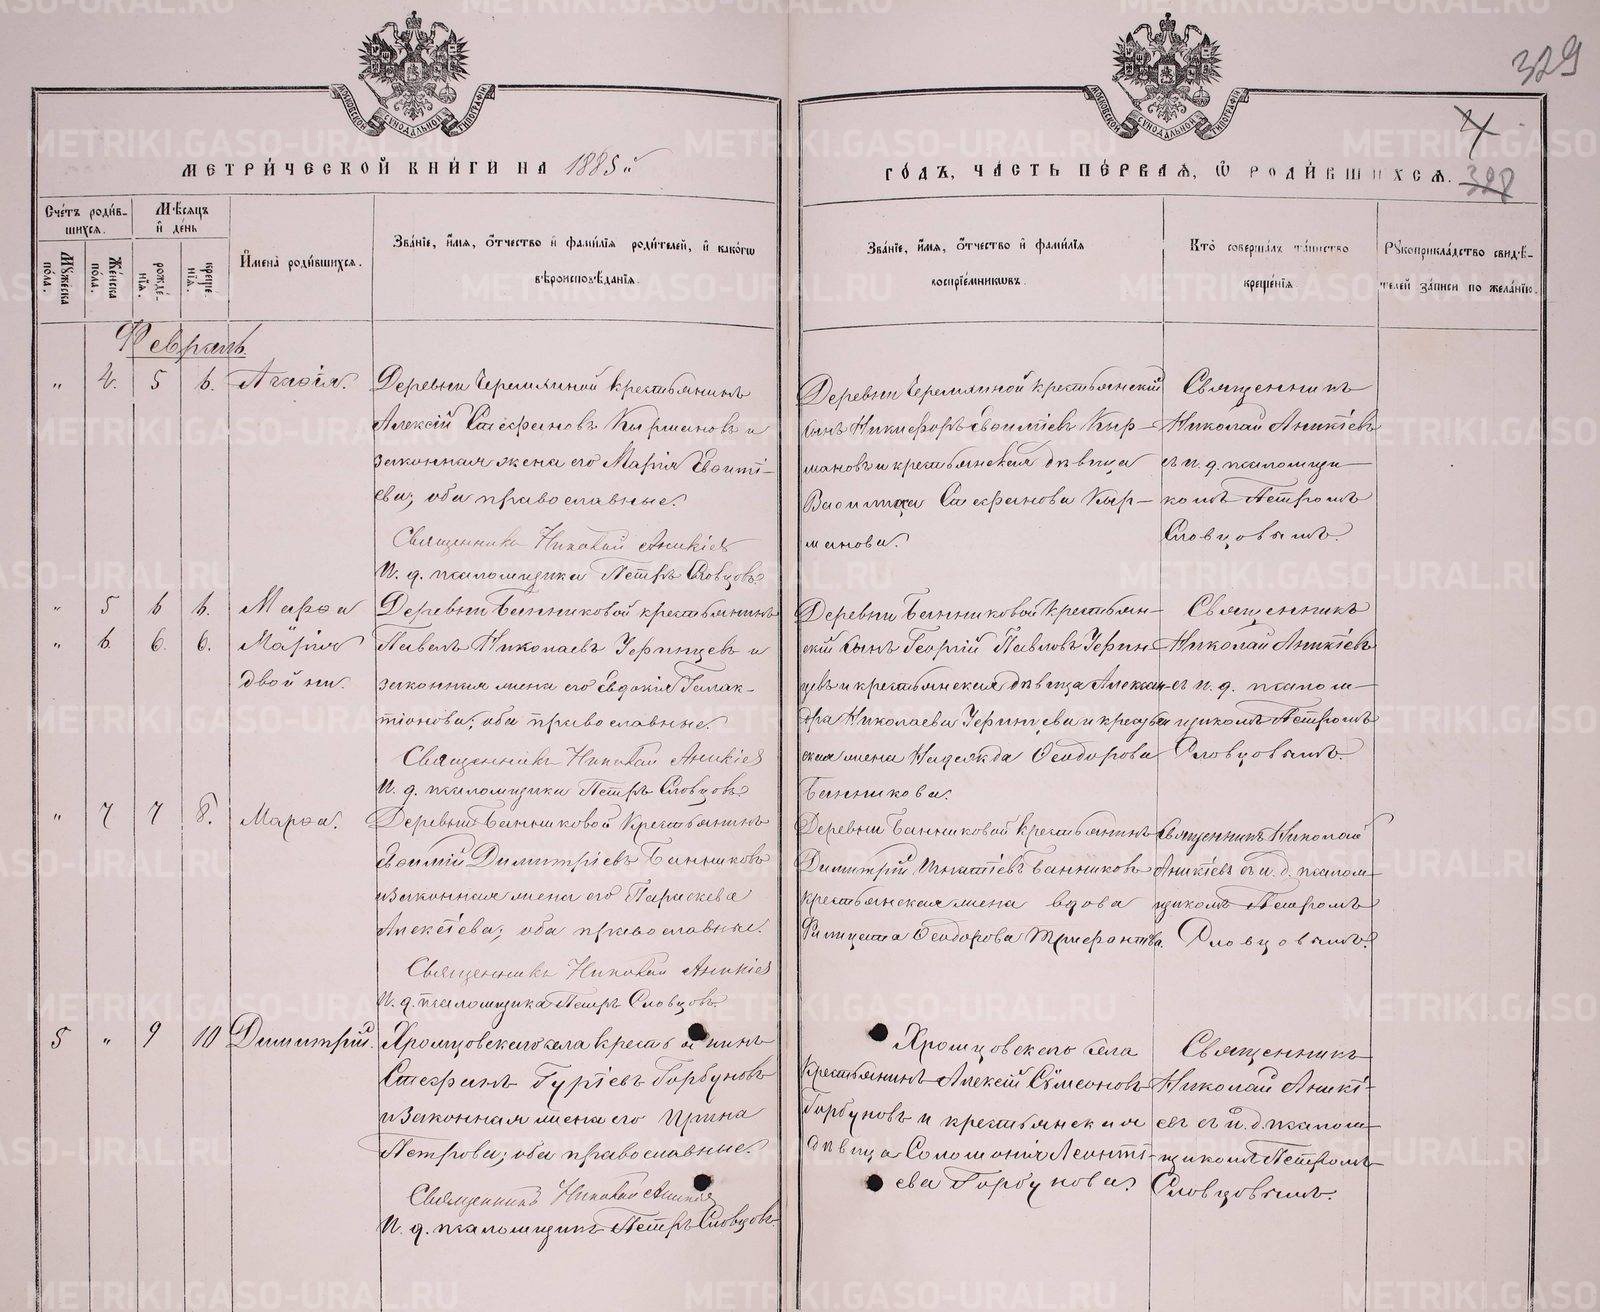 329
4
328
МОСКОВСКОЙ СѴНОДАЛЬНОЙ ТИПОГРАФІИ
МОСКОВСКОЙ СѴНОДАЛЬНОЙ ТИПОГРАФІИ
МЕТРИ́ЧЕСКОЙ КНИ́ГИ НА 1885й
ГО́ДЪ, ЧА́СТЬ ПЕ́РВАЯ, Ѡ РОДИ́ВШИХСЯ.
Счётъ роди́в-
шихся.
Мѣ́сяцъ
и де́нь
Мꙋ́жеска по́ла.
Же́нска по́ла.
рожде́-
нїя.
креще́-
нїя.
И҆мена̀ роди́вшихся.
Зва́нїе, и҆́мя, ѻ҆́тчество и҆ фами́лїя роди́телей, и҆ како́гѡ
вѣроисповѣ́данїя.
Зва́нїе, и҆́мя, ѻ҆́тчество и҆ фами́лїя
воспрїе́мникѡвъ.
Кто̀ соверша́лъ та́инство
креще́нїя
Рꙋкоприкла́дство свидѣ́-
телей за́писи по жела́нїю.
Февраль.
" 4. 5 6. Агаѳія.
Деревни Черемлиной крестьянинъ
Алексій Стефановъ Кырмановъ и
законная жена его Марія Евѳимі-
ева; оба православные.
Священникъ Николай Аникіевъ
И. д. псаломщика Петръ Словцовъ
Деревни Черемлиной крестьянскій
сынъ Никифоръ Евѳиміевъ Кыр-
мановъ и крестьянская дѣвица
Василиса Стефанова Кыр-
манова.
Священникъ
Николай Аникіевъ
съ и. д. псаломщи-
комъ Петромъ
Словцовымъ.
" 5 6 6. Марѳа
" 6. 6. 6. Марія
двойни.
Деревни Банниковой крестьянинъ
Павелъ Николаевъ Уфинцевъ и
законная жена его Евдокія Галак-
тіонова; оба православные.
Священникъ Николай Аникіев
И. д. псаломщика Петръ Словцовъ
Деревни Банниковой крестьян-
скій сынъ Георгій Павловъ Уфин-
цевъ и крестьянская дѣвица Алексан-
дра Николаева Уфинцева и крестьян
ская жена Надежда Ѳеодорова
Банникова.
Священникъ
Николай Аникіевъ
съ и. д. псалом-
щикомъ Петромъ
Словцовымъ.
" 7 7 8. Марѳа.
Деревни Банниковой крестьянинъ
Евѳимій Димитріевъ Банниковъ
и законная жена его Параскева
Алексіева; оба православные.
Священникъ Николай Аникіев
И. д. псаломщика Петръ Словцовъ.
Деревни Банниковой крестьянинъ
Димитрій Игнатіевъ Банниковъ
крестьянская жена вдова
Филицата Ѳеодорова
Священникъ Николай
Аникіевъ съ и. д. псалом-
щикомъ Петромъ
Словцовымъ.
5 " 9 10 Димитрій.
Хромцовскаго села крестьянинъ
Стефанъ Гуріевъ Горбуновъ
и законная жена его Ирина
Петрова; оба православные.
Священникъ Николай Аникіев
И. д. псаломщикъ Петръ Словцовъ
Хромцовскаго села
крестьянинъ Алексій Сѵмеоновъ
Горбуновъ и крестьянская
дѣвица Соломонія Леонті-
ева Горбунова.
Священникъ
Николай Аникі-
евъ съ и. д. псалом-
щикомъ Петромъ
Словцовымъ.
METRIKI.GASO-URAL.RU